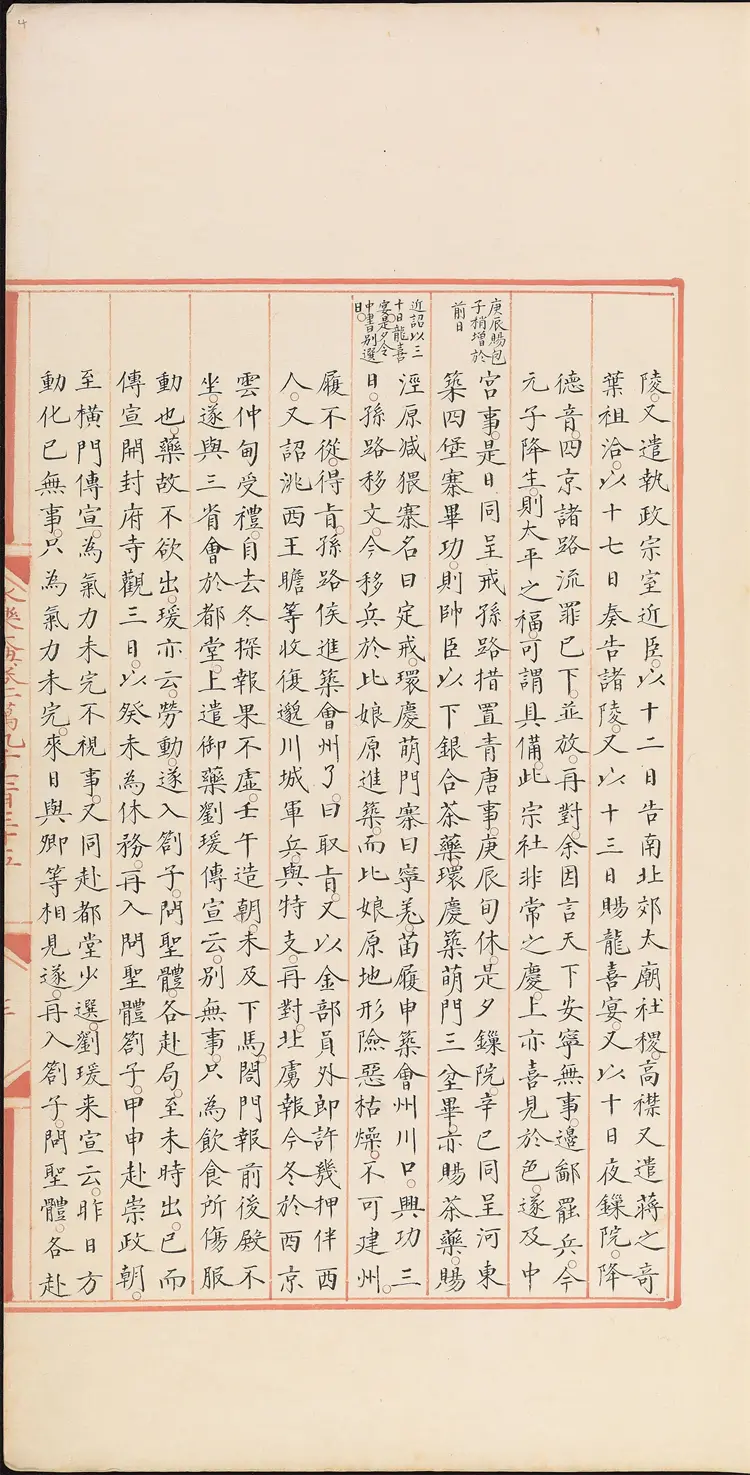 陵。又遣執政宗室近臣。以十二日告南北郊太廟社稷。高禖又遣蔣之奇
葉祖洽。以十七日奏告諸陵。又以十三日賜龍喜宴。又以十日夜鏁院。降
德音。四京諸路流罪已下。並放。再對。余因言天下安寧無事。邊鄙罷兵。今
元子降生。則太平之福。可謂具備。此宗社非常之慶。上亦喜見於色。遂及中
宮事。是日同呈戒孫路措置青唐事。庚辰旬休。是夕鏁院。辛巳同呈河東
庚辰賜包
子稍增於
前日
築四堡寨畢功。則帥臣以下銀合茶藥。環慶築萌門三坌畢。亦賜茶藥。賜
涇原減猥寨名曰定戎。環慶萌門寨曰寧羌。苗履申築會州川口。興功三
近詔以三
十日龍喜
宴。是夕令
中書別選
日。
日。孫路移文。今移兵於比娘原進築。而比娘原地形險惡枯燥。不可建州。
履不從。得旨。孫路俟進築會州了。曰取旨。又以金部員外郎許幾押伴西
人。又詔洮西王瞻等收復邈川城軍兵。與特支。再對。北虜報今冬於西京
雲仲甸受禮。自去冬探報果不虛。壬午造朝。未及下馬。閤門報前後殿不
坐。遂與三省會於都堂。上遣御藥劉瑗傳宣云。別無事。只為飲食所傷服
動也。藥故不欲出。瑗亦云。勞動。遂入劄子。問聖體。各赴局。至未時出。已而
傳宣開封府寺觀三日。以癸未為休務。再入問聖體劄子。甲申赴崇政朝。
至橫門傳宣。為氣力未完不視事。又同赴都堂少選。劉瑗来宣云。昨日方
動化已無事。只為氣力未完。來日與卿等相見。遂。再入劄子。問聖體。各赴